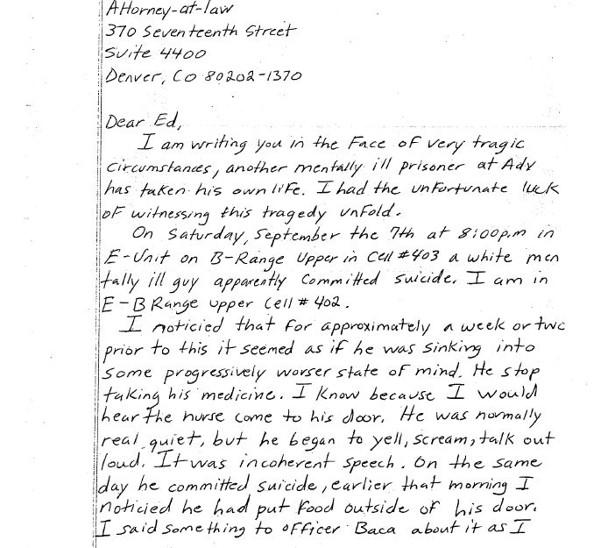 Attorney-at-law
370 Seventeenth Street
Suite 4400
Denver, Co 80202-1370
Dear Ed,
I am writing you in the Face of very tragic
circumstances, another mentally ill prisoner at Adx
has taken his own life. I had the unfortunate luck
of witnessing this tragedy unfold.
On Saturday, September the 7th at 8:00p.m in
E-Unit on B-Range Upper in Cell #403 a white men
tally ill guy apparently Committed suicide. I am in
E-B Range upper Cell # 402.
I noticied that for approximately a week or two
prior to this it seemed as if he was sinking into
some progressively worser state of mind. He stop
taking his medicine. I know because I would
hear the nurse come to his door. He was normally
real quiet, but he began to yell, scream, talk out
loud. It was incoherent speech. On the same
day he committed suicide, earlier that morning I
noticied he had put food outside of his door.
I said something to officer Baca about it as I